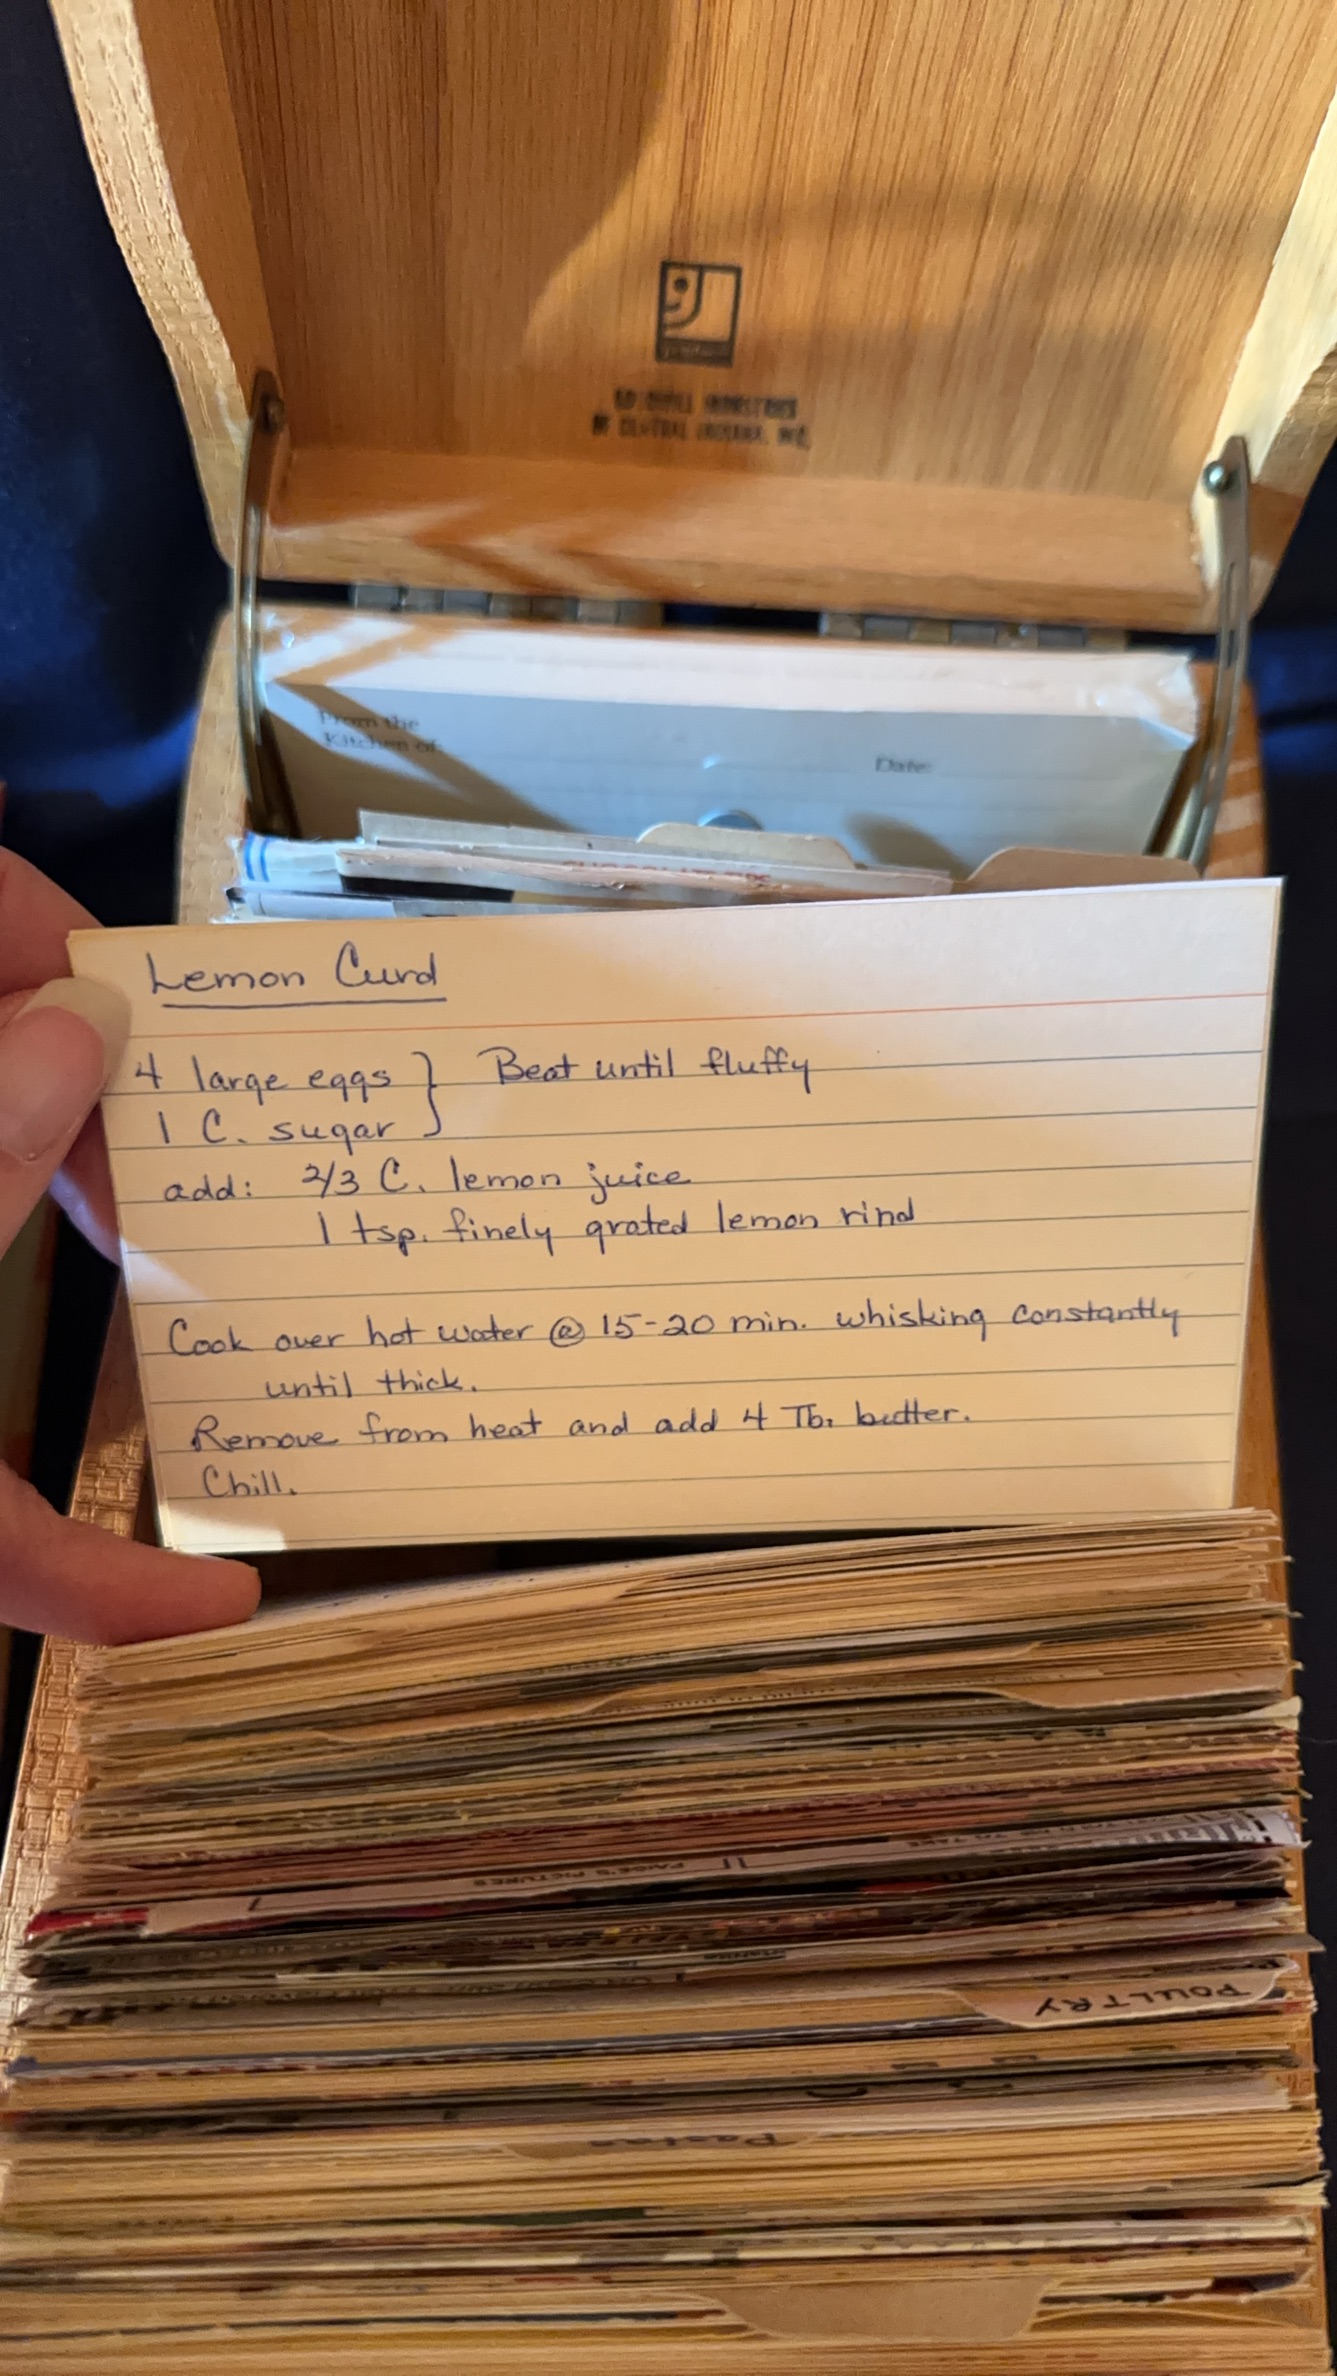 GOODWILL INDUSTRIES
OF CENTRAL INDIANA, INC.
From the
Kitchen of:
Date:
Lemon Curd
4 large eggs } Beat until fluffy
1 C. sugar
add: 2/3 C. lemon juice
1 tsp. finely grated lemon rind
Cook over hot water @ 15-20 min. whisking constantly
until thick.
Remove from heat and add 4 Tb. butter.
Chill.
PAIGE'S PICTURES
POULTRY
Pastas